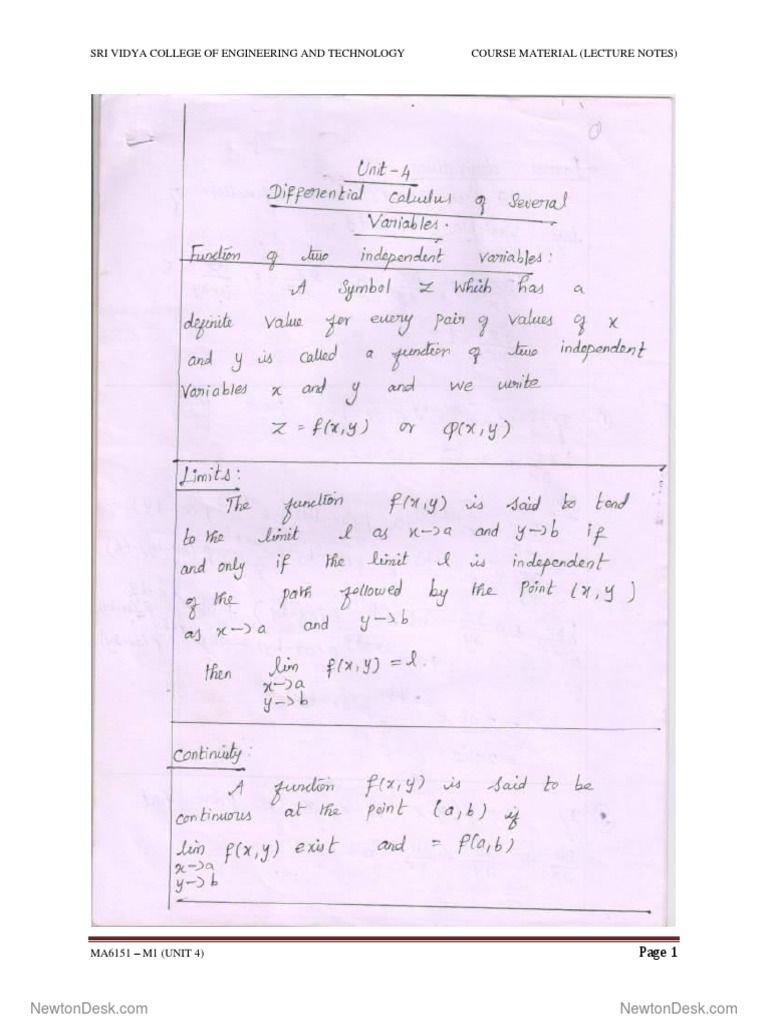 SRI VIDYA COLLEGE OF ENGINEERING AND TECHNOLOGY COURSE MATERIAL (LECTURE NOTES)
Unit-4
Differential Calculus of Several
Variables.
Function of two independent variables:
A Symbol Z which has a
definite value for every pair of values of x
and y is called a function of two independent
Variables x and y and we write
Z = f(x,y) or φ(x,y)
Limits:
The function f(x,y) is said to tend
to the limit l as x→a and y→b if
and only if the limit l is independent
of the path followed by the Point (x,y)
as x→a and y→b
then lim f(x,y) = l.
x→a
y→b
Continuity:
A function f(x,y) is said to be
continuous at the point (a,b) if
lim f(x,y) exist and = f(a,b)
x→a
y→b
MA6151 – M1 (UNIT 4) Page 1
NewtonDesk.com NewtonDesk.com